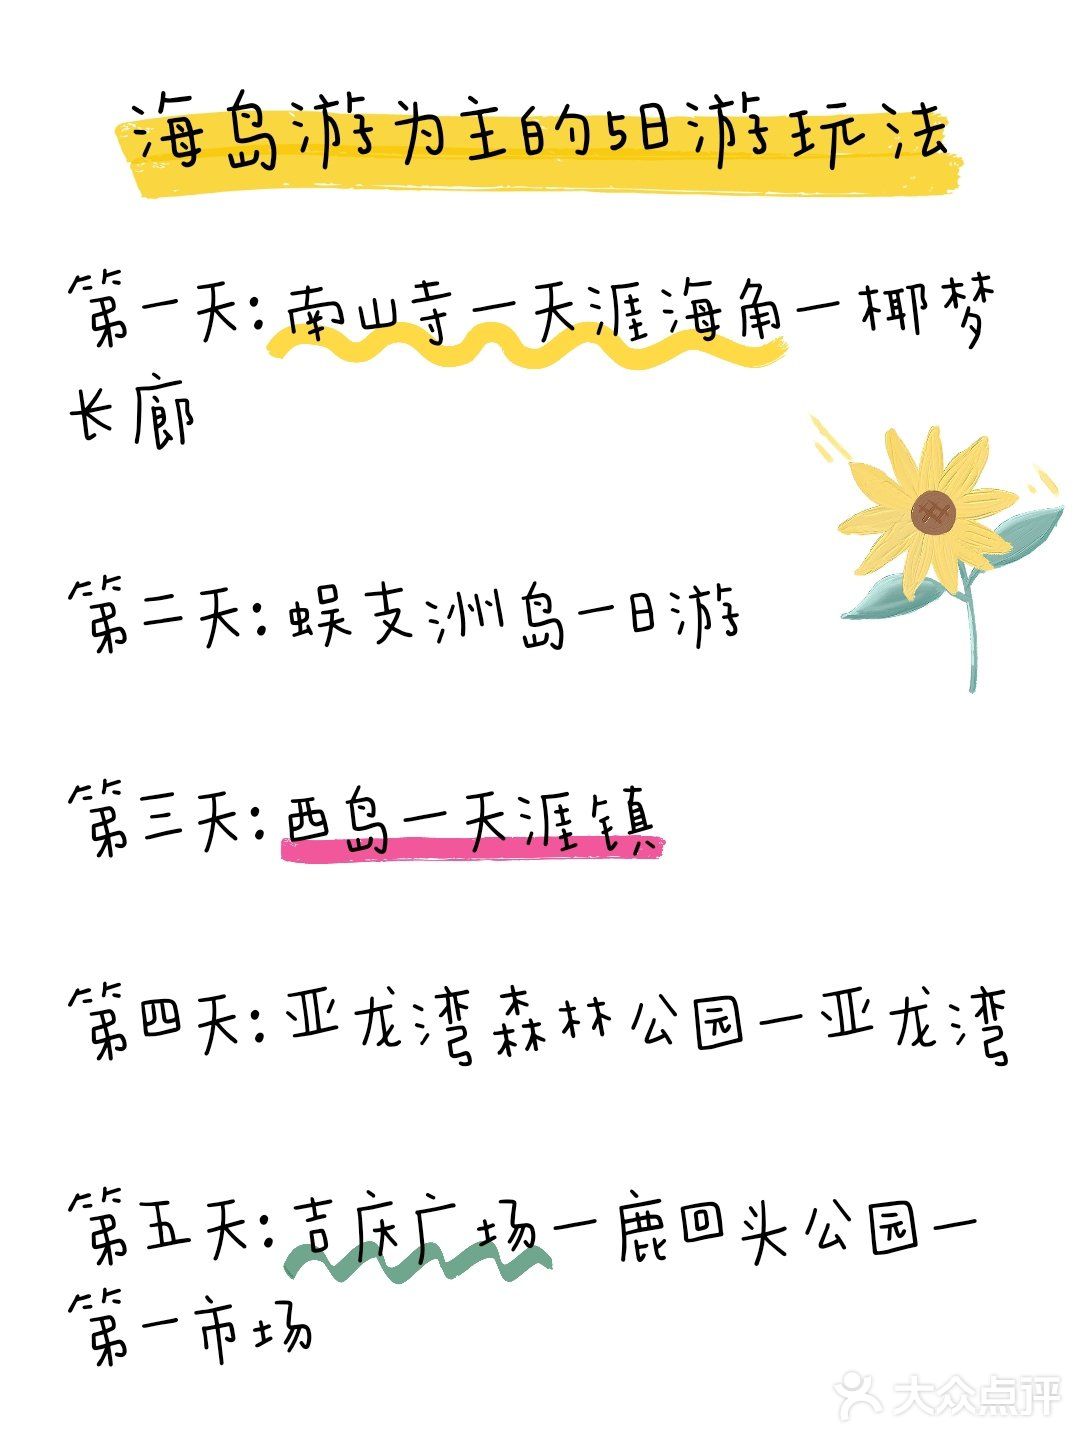 海岛游为主的5日游玩法
第一天:南山寺一天涯海角一椰梦
长廊
第二天:蜈支洲岛一日游
第三天:西岛一天涯镇
第四天:亚龙湾森林公园一亚龙湾
第五天:吉庆广场一鹿回头公园一
第一市场
大众点评